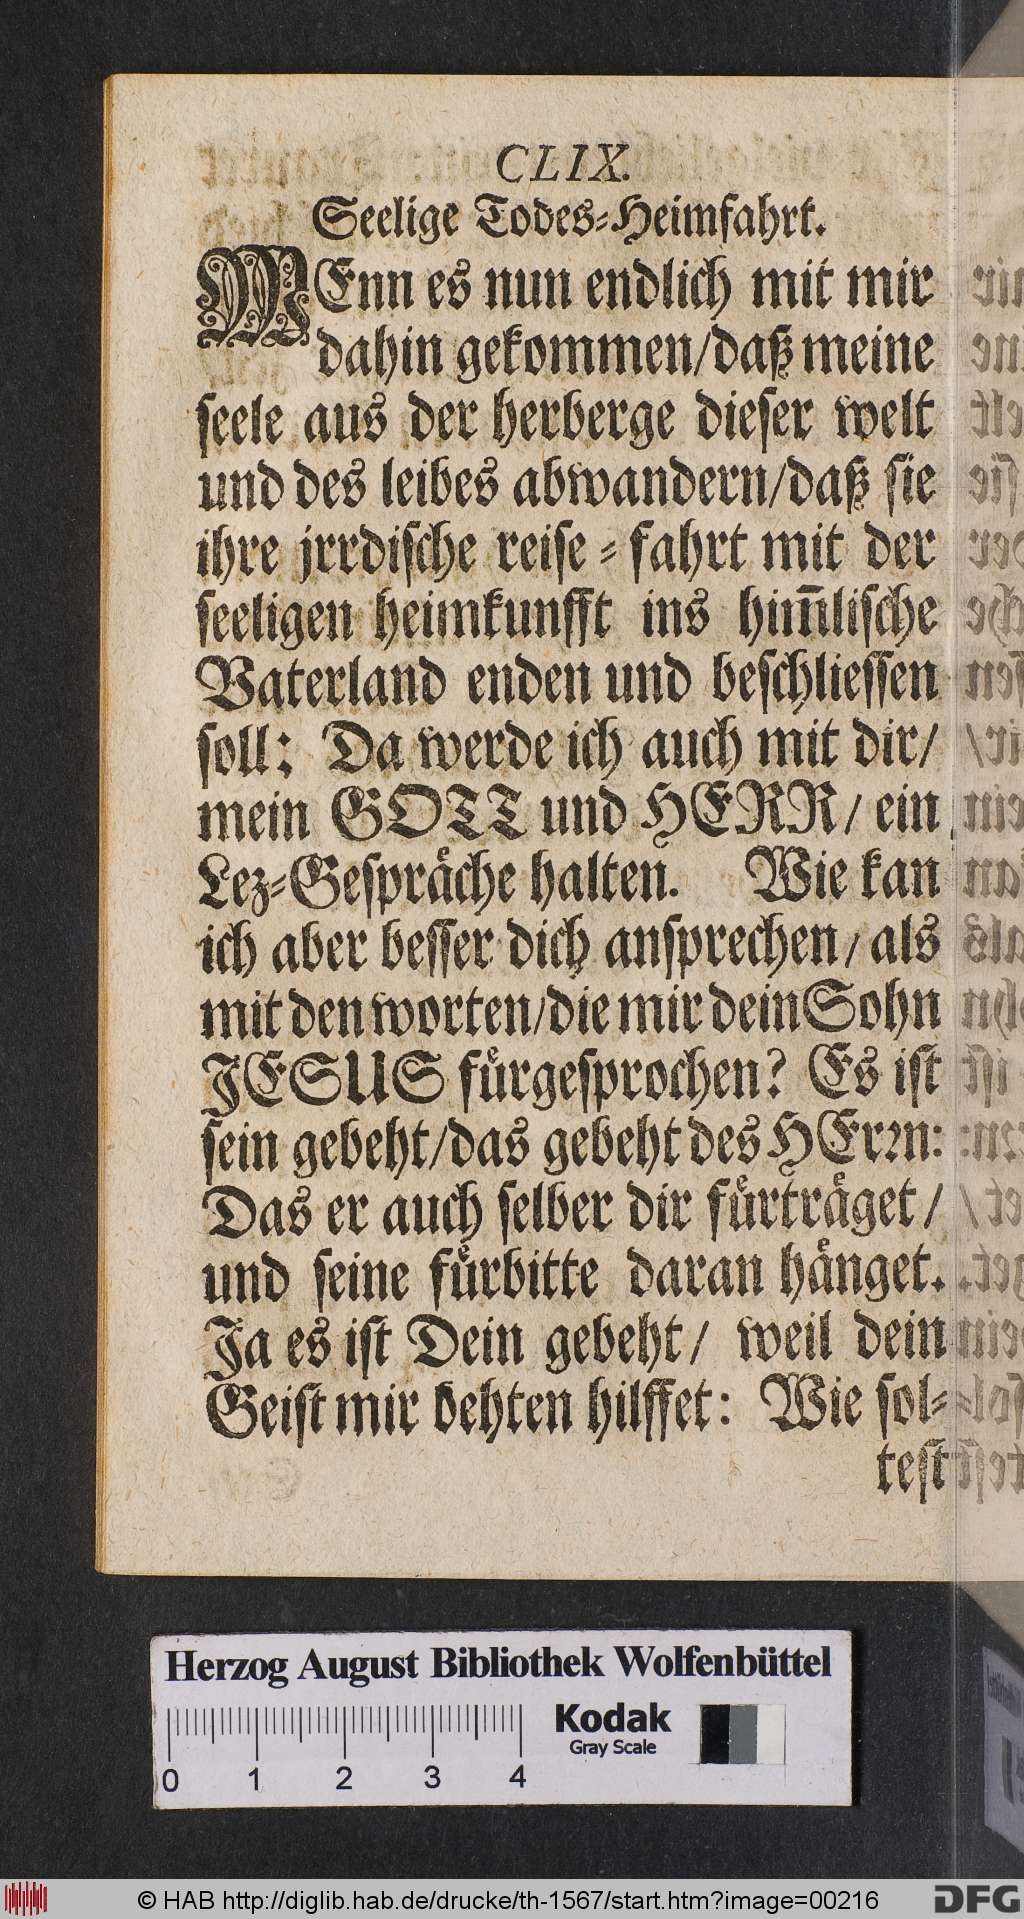 CLIX.
Seelige Todes-Heimfahrt.
WEnn es nun endlich mit mir
dahin gekommen/daß meine
seele aus der herberge dieser welt
und des leibes abwandern/daß sie
ihre jrrdische reise-fahrt mit der
seeligen heimkunfft ins him̄lische
Vaterland enden und beschliessen
soll: Da werde ich auch mit dir/
mein GOTT und HERR/ ein
Lez-Gespräche halten. Wie kan
ich aber besser dich ansprechen/ als
mit den worten/die mir dein Sohn
JESUS fürgesprochen? Es ist
sein gebeht/das gebeht des HErrn:
Das er auch selber dir fürträget/
und seine fürbitte daran hänget.
Ja es ist Dein gebeht/ weil dein
Geist mir behten hilffet: Wie sol-
test
Herzog August Bibliothek Wolfenbüttel
Kodak
Gray Scale
0 1 2 3 4
© HAB http://diglib.hab.de/drucke/th-1567/start.htm?image=00216
DFG